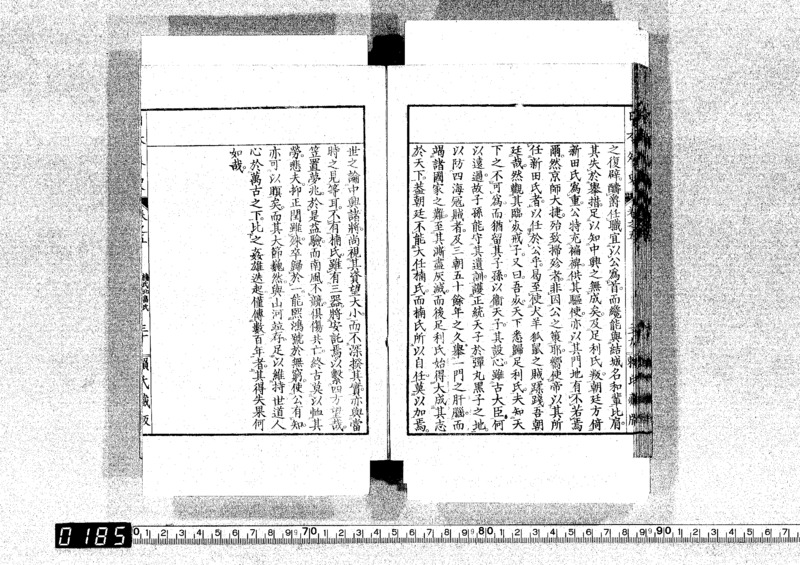 之復辟醻爵任職宜以公爲首而纔能與結城名和輩比肩
其失於擧措足以知中興之無成矣及足利氏叛朝廷方倚
新田氏爲重公特充褊裨供其驅使亦以其門地有不若焉
爾然京師大捷殆致掃殄者非因公之策耶嚮使帝以其所
任新田氏者以任於公乎易至使犬羊狐鼠之賊蹂踐吾朝
廷哉然觀其臨死戒子又曰吾死天下悉歸足利氏夫知天
下之不可爲而猶留其子孫以衞天子其設心雖古大臣何
以遠過故子孫能守其遺訓護正統天子於彈丸黑子之地
以防四海寇賊者及三朝五十餘年之久擧一門之肝腦而
竭諸國家之難至其漸盡灰滅而後足利氏始得大成其志
於天下葢朝廷不能大任楠氏而楠氏所以自任莫以加焉
世之論中興諸將尚視其資望大小而不深揆其實亦與當
時之見等耳不有楠氏雖有三器將安託焉以繋四方望哉
笠置夢兆於是益驗而南風不競倶傷共亡終古莫以恤其
勞悲夫抑正閏雖殊卒歸於一能熙鴻號於無窮使公有知
亦可以瞑矣而其大節巍然與山河竝存足以維持世道人
心於萬古之下比之姦雄迭起僅傳數百年者其得失果何
如哉
卷之五
楠氏
三十
賴氏藏版
0185
0 1 2 3 4 5 6 7 8 9 70 1 2 3 4 5 6 7 8 9 80 1 2 3 4 5 6 7 8 9 90 1 2 3 4 5 6 7